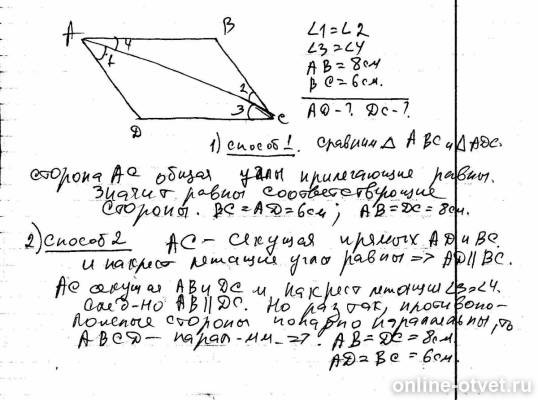 A
B
4
1
2
3
D
C
∠1=∠2
∠3=∠4
AB=8см
BC=6см.
AD-? DC-?
1) способ 1. сравним △ ABC и △ ADC.
сторона AC общая углы прилегающие равны.
Значит равны соответствующие
стороны. BC=AD=6см; AB=DC=8см.
2) способ 2 AC - секущая прямых AD и BC.
и накрест лежащие углы равны => AD∥BC.
AC секущая AB и DC и накрест лежащие ∠3=∠4.
След-но AB∥DC. Но раз так, противопо-
ложные стороны попарно параллельны, то
ABCD - парал-мм. =>. AB=DC=8см.
AD=BC=6см.
online-otvet.ru